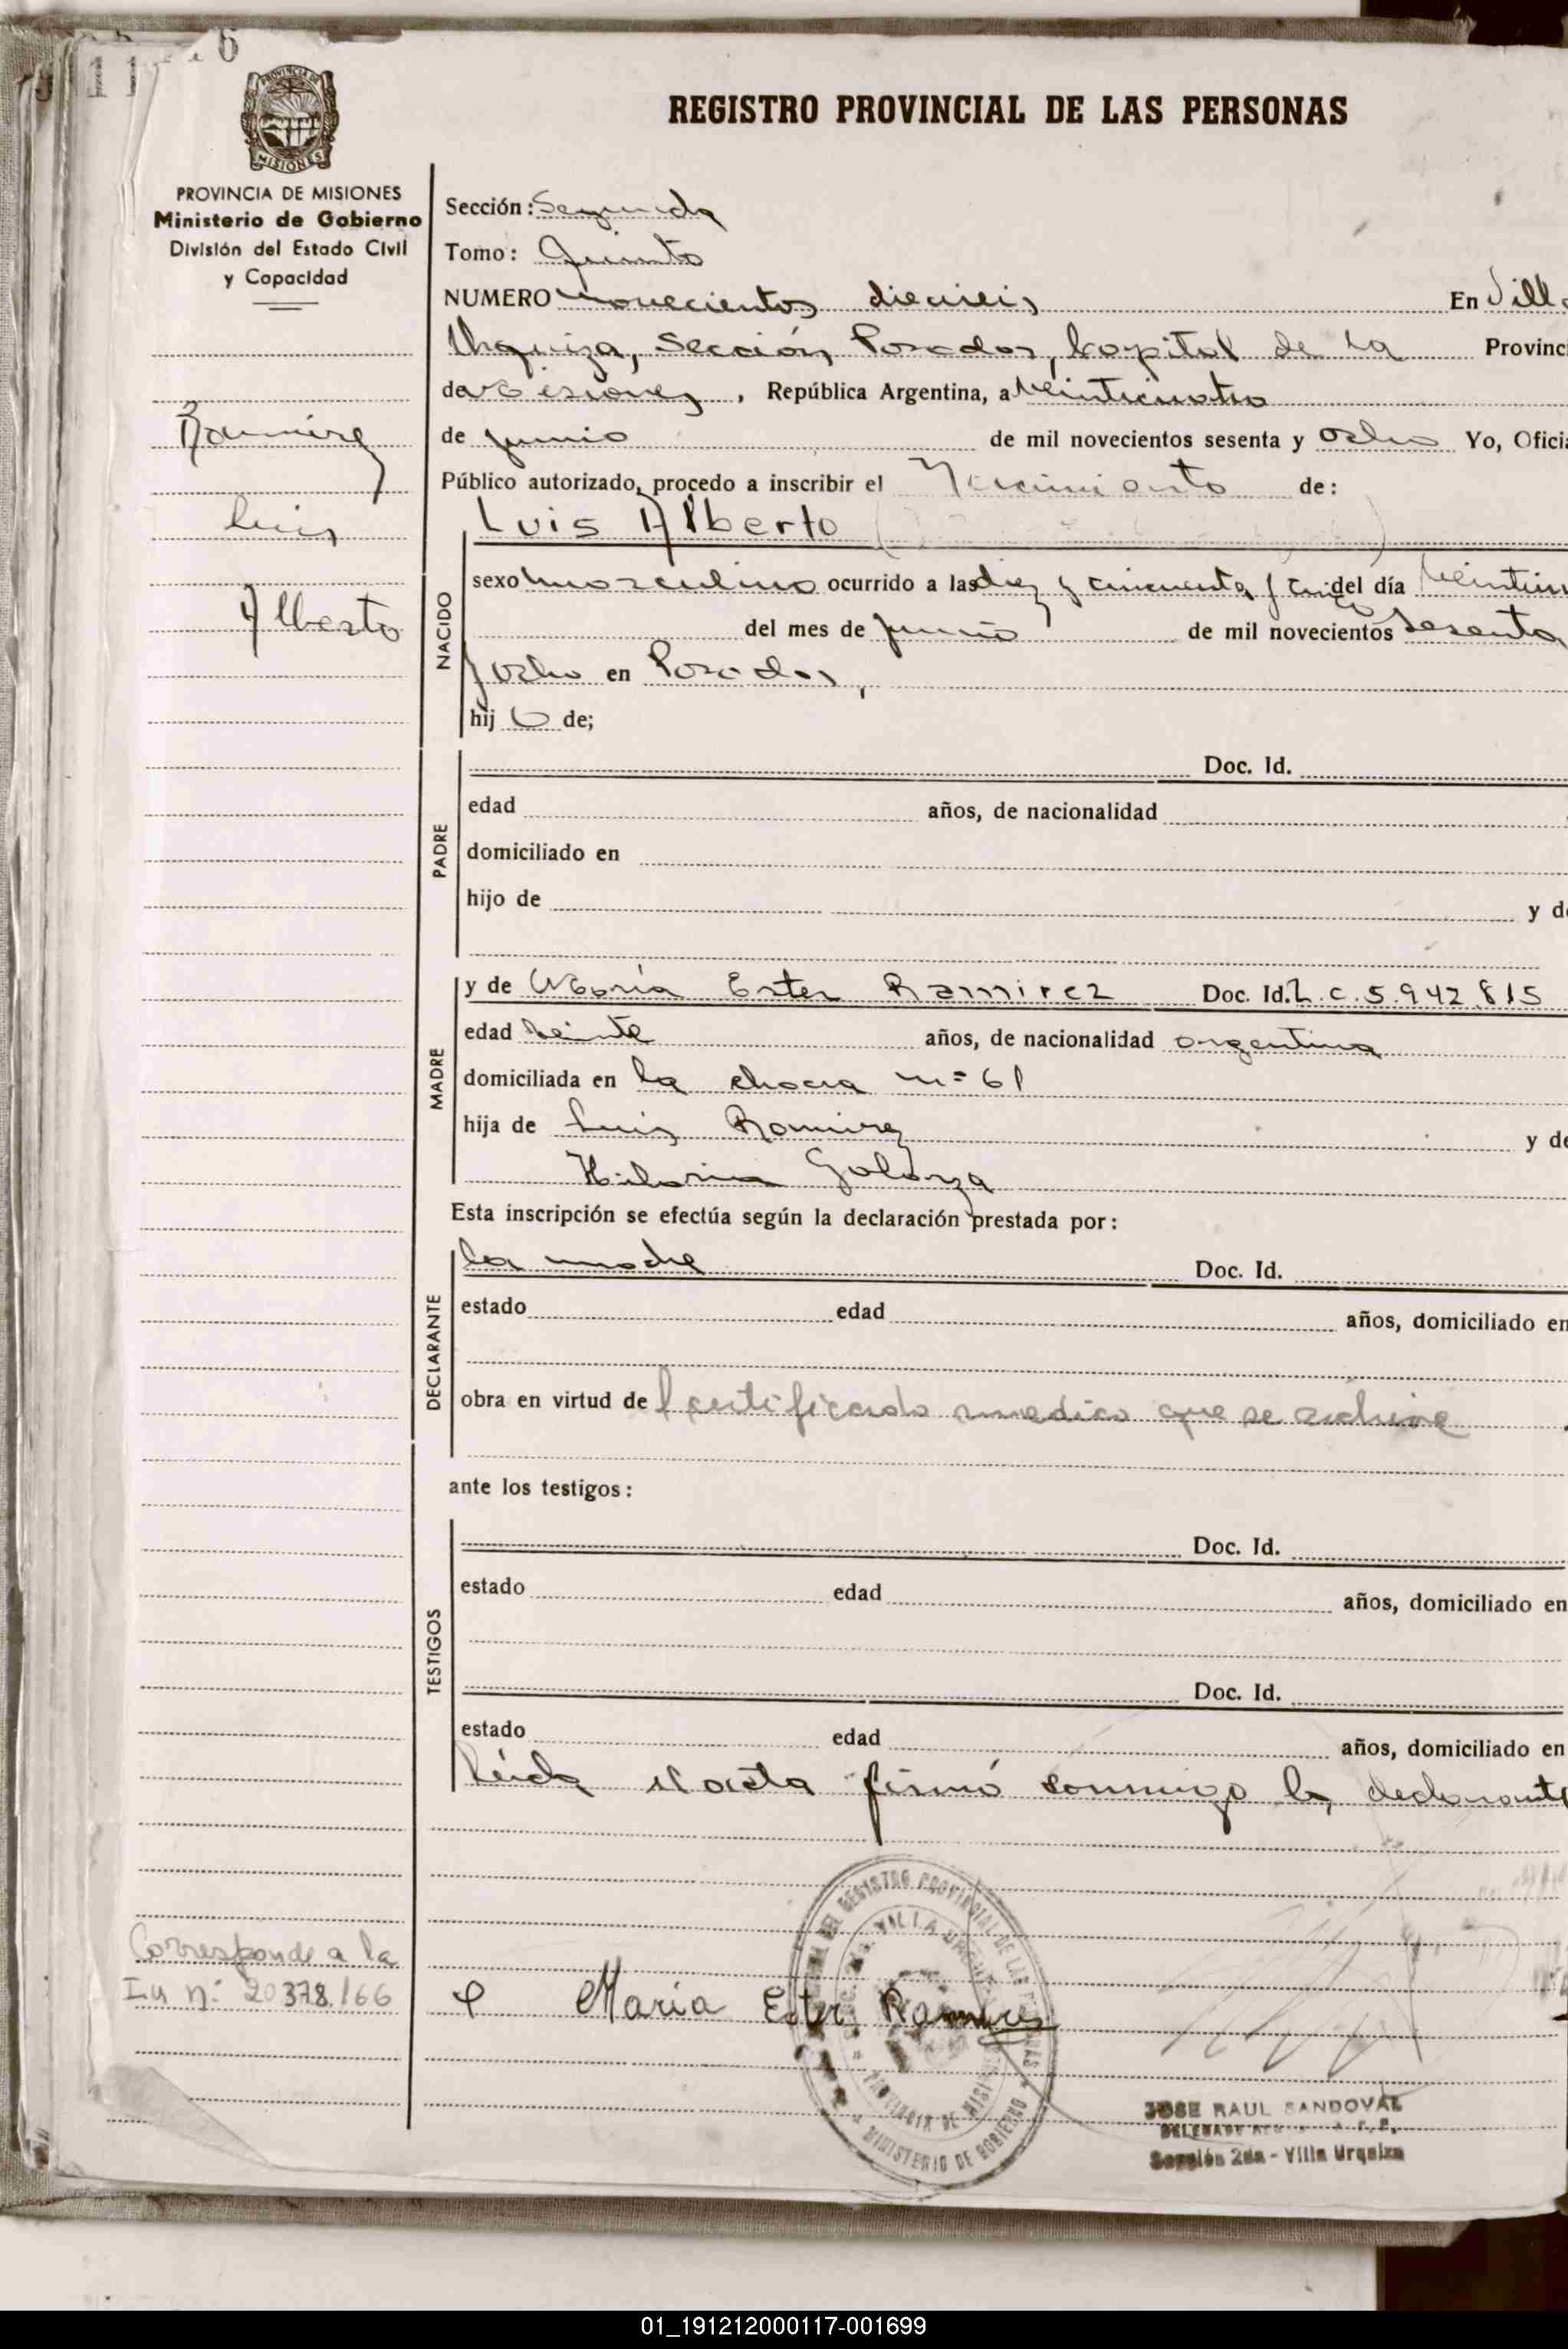 REGISTRO PROVINCIAL DE LAS PERSONAS
PROVINCIA DE MISIONES
Ministerio de Gobierno
División del Estado Civil
y Capacidad
Ramirez
Luis
Alberto
Sección: Segunda
Tomo: Quinto
NUMERO novecientos dieciseis En Villa
Urquiza, Sección Posadas, Capital de la Provinci
de Misiones, República Argentina, a veinticuatro
de junio de mil novecientos sesenta y ocho Yo, Ofici
Público autorizado, procedo a inscribir el Nacimiento de:
NACIDO
Luis Alberto
sexo masculino ocurrido a las diez y cincuenta y cinco del día
del mes de junio de mil novecientos sesenta
y ocho en Posadas,
hij o de;
PADRE
Doc. Id.
edad años, de nacionalidad
domiciliado en
hijo de y de
MADRE
y de María Ester Ramirez Doc. Id. L.C. 5.942.815
edad veinte años, de nacionalidad argentina
domiciliada en la chacra nº 61
hija de Luis Ramirez y de
Hilaria Galarza
Esta inscripción se efectúa según la declaración prestada por:
DECLARANTE
la madre Doc. Id.
estado edad años, domiciliado en
obra en virtud de l certificado medico que se archiva
ante los testigos:
TESTIGOS
Doc. Id.
estado edad años, domiciliado en
Doc. Id.
estado edad años, domiciliado en
Leída el acta firmó conmigo la declarante
Corresponde a la
In nº 20378/66
Maria Ester Ramires
REGISTRO PROVINCIAL DE LAS
VILLA URQUIZA
PROVINCIA DE MISIONES
MINISTERIO DE GOBIERNO
JOSE RAUL SANDOVAL
Sección 2da - Villa Urquiza
01_191212000117-001699